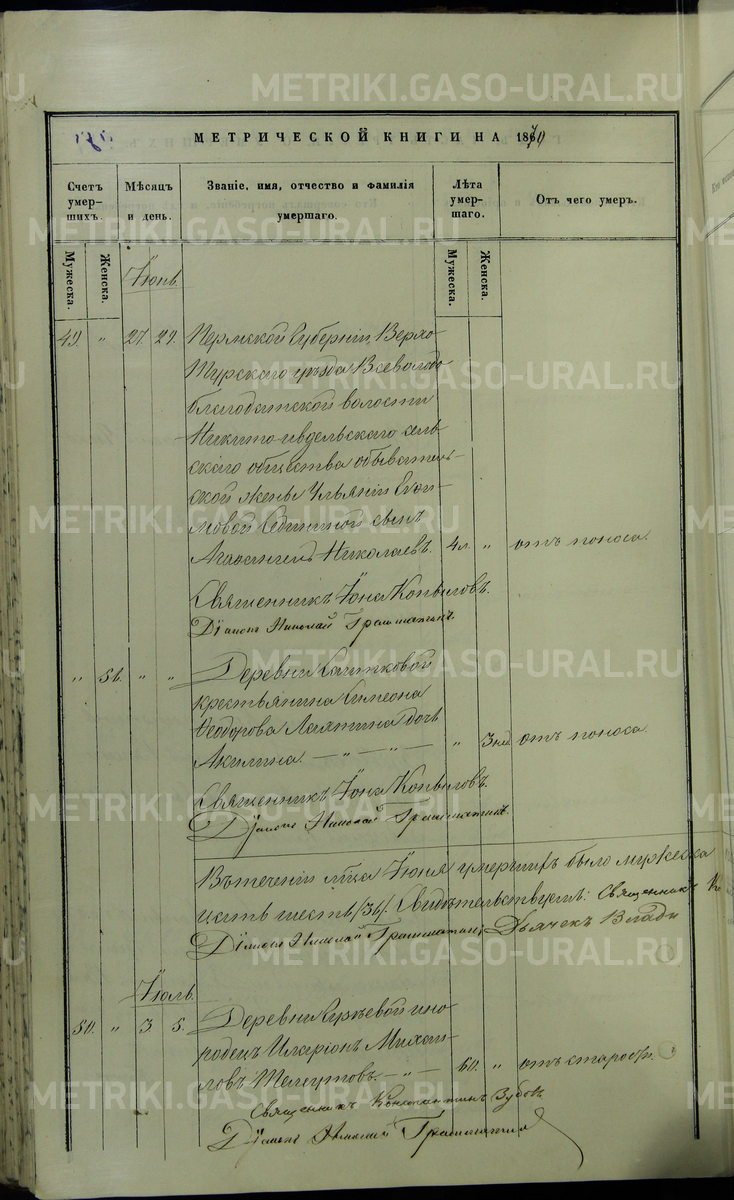 МЕТРИЧЕСКОЙ КНИГИ НА 1870
Счетъ умерших.
Мѣсяцъ и день.
Званіе, имя, отчество и фамилія умершаго.
Лѣта умершаго.
Отъ чего умеръ.
Мужеска.
Женска.
Мужеска.
Женска.
Іюнь.
49. " 27. 29. Пермской Губерніи, Верхо-
турскаго уѣзда Всеволодо
благодатской волости
Никито-ивдельскаго сель-
скаго общества обыватель-
ской жены Ульяніи Ефи-
мовой сынъ
Николаевъ. 4 л. " отъ поноса.
Священникъ Іона Копыловъ.
Діаконъ Николай Грамматинъ.
" 51. " " Деревни
крестьянина Симеона
Ѳеодорова Лаптина дочь
Акилина. — " — " — " 3 нед. отъ поноса.
Священникъ Іона Копыловъ.
Діаконъ Николай Грамматинъ.
Въ теченіи м̃ца Іюня умершихъ было мужеска
шесть /36/. Свидѣтельствуемъ: Священникъ
Діаконъ Николай Грамматинъ, Дьячекъ Влади
Іюль.
50. " 3 5. Деревни ино-
родецъ Иларіонъ Михаи-
ловъ Телеутовъ. — " — 60. " отъ старости.
Священникъ Константинъ Зубовъ
Діаконъ Николай Грамматинъ
METRIKI.GASO-URAL.RU